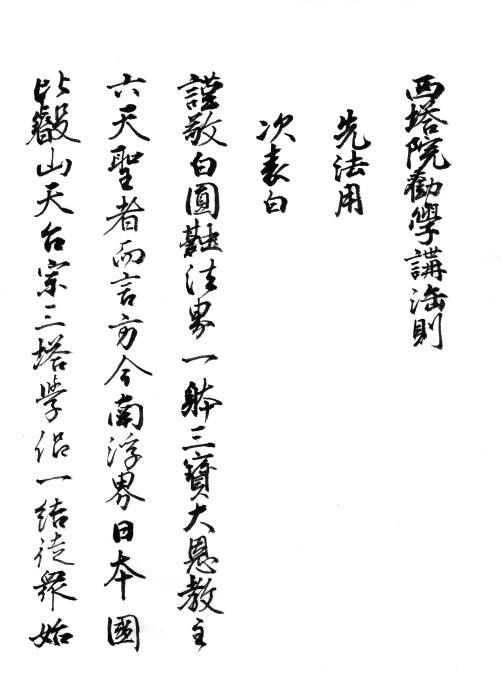 西塔院勸學講法則
先法用
次表白
謹敬白圓融法界一躰三寳大恩教主
六天聖者而言方今南浮界日本國
比叡山天台宗三塔學侶一結徒衆始